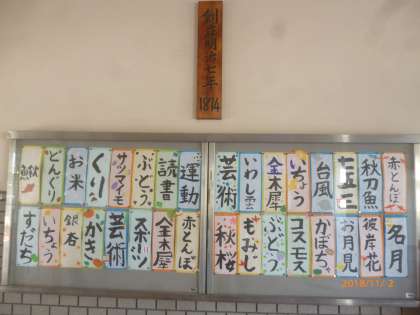 創立明治七年
1874
赤とんぼ
秋刀魚
七五三
台風
いちょう
金木犀
いわし雲
芸術
名月
彼岸花
お月見
かぼちゃ
コスモス
ぶどう
もみじ
秋桜
運動
読書
ぶどう
サツマイモ
くり
お米
どんぐり
赤とんぼ
金木犀
スポーツ
芸術
かき
銀杏
いちょう
すだち
2018/11/2